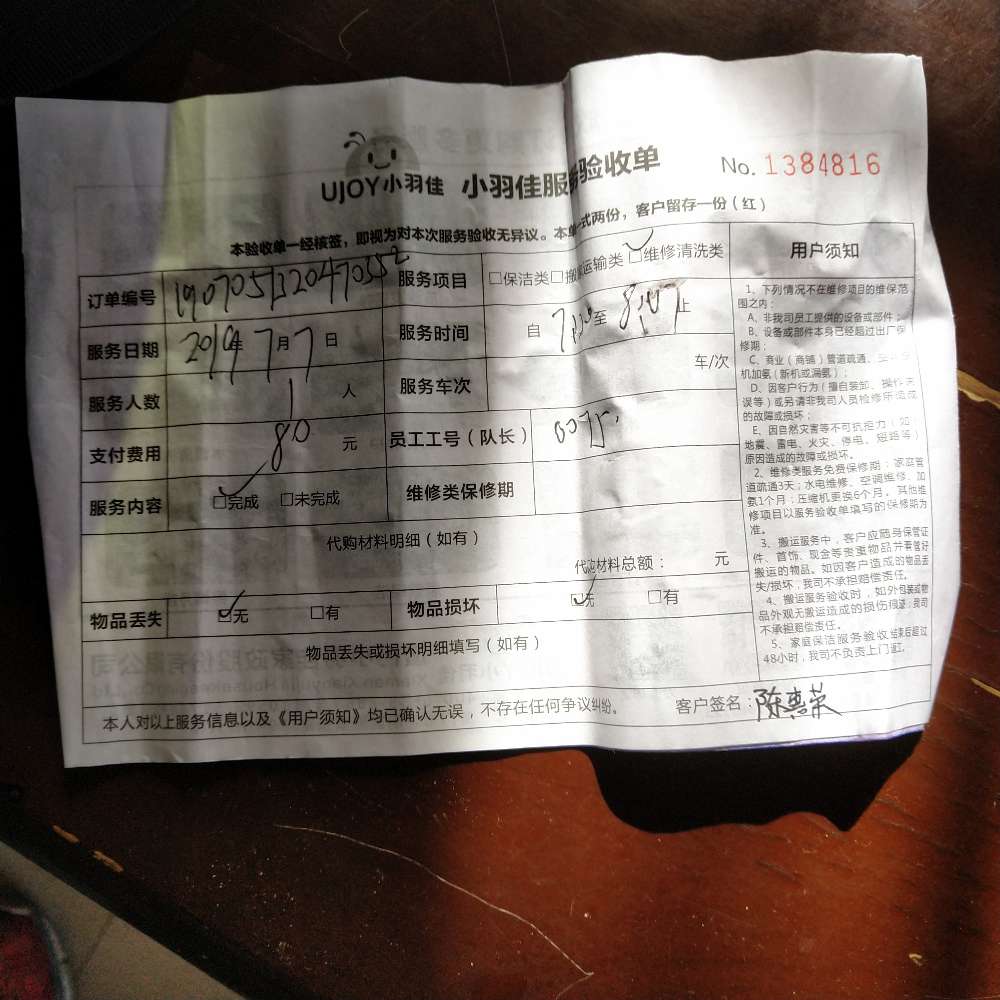 UJOY小羽佳 小羽佳服务验收单 No. 1384816
本验收单一经核签，即视为对本次服务验收无异议。本单一式两份，客户留存一份（红）
订单编号 服务项目 □保洁类□搬运输类□维修清洗类
服务日期 2019年7月7日 服务时间 自 至 止
服务人数 1 人 服务车次 车/次
支付费用 80 元 员工工号（队长）
服务内容 ☑完成 □未完成 维修类保修期
代购材料明细（如有）
代购材料总额： 元
物品丢失 ☑无 □有 物品损坏 ☑无 □有
物品丢失或损坏明细填写（如有）
本人对以上服务信息以及《用户须知》均已确认无误，不存在任何争议纠纷。 客户签名：陈惠荣
用户须知
1、下列情况不在维修项目的维保范
围之内：
A、非我司员工提供的设备或部件；
B、设备或部件本身已经超过出厂保
修期；
C、商业（商铺）管道疏通、
机加氨（新机或漏氨）；
D、因客户行为（擅自装卸、操作失
误等）或另请非我司人员检修所造成
的故障或损坏；
E、因自然灾害等不可抗拒力（如
地震、雷电、火灾、停电、短路等）
原因造成的故障或损坏。
2、维修类服务免费保修期：家庭管
道疏通3天；水电维修、空调维修、加
氨1个月；压缩机更换6个月。其他维
修项目以服务验收单填写的保修期为
准。
3、搬运服务中，客户应随身保管证
件、首饰、现金等贵重物品并看管好
搬运的物品。如因客户造成的物品丢
失/损坏，我司不承担赔偿责任。
4、搬运服务验收时，如外包装或物
品外观无搬运造成的损伤痕迹，我司
不承担赔偿责任。
5、家庭保洁服务验收结束后超过
48小时，我司不负责上门返工。